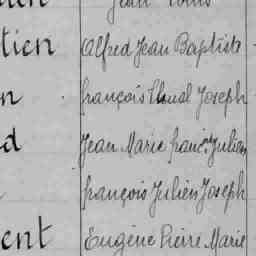 Jean Louis
tien Alfred Jean Baptiste
n françois Joseph
d Jean Marie franc. Julien
françois Julien Joseph
ent Eugène Pierre Marie